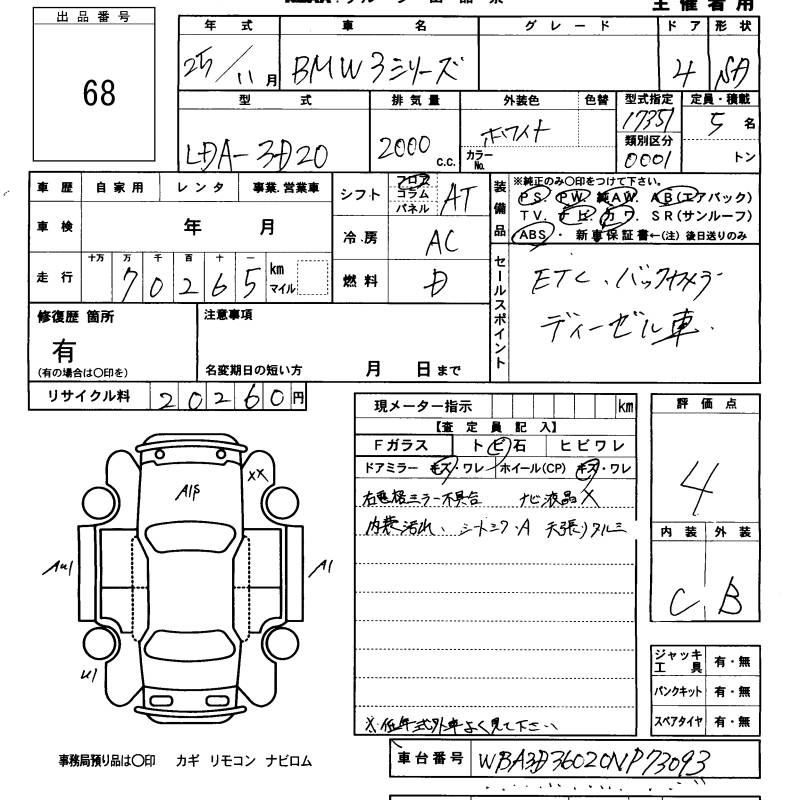 主催者用
出品番号
68
年式 車名 グレード ドア 形状
25/11月 BMW 3シリーズ 4 SD
型式 排気量 外装色 色替 型式指定 定員・積載
17351
LDA-3D20 2000 c.c. ホワイト 5名
カラーNo. 類別区分
0001 トン
車歴 自家用 レンタ 事業.営業車
シフト フロア コラム パネル AT
装備品 ※純正のみ○印をつけて下さい。
PS. PW. 純AW. AB(エアバック)
TV. ナビ. カワ. SR(サンルーフ)
ABS・ 新車保証書←(注) 後日送りのみ
車検 年 月
冷房 AC
走行 十万 万 千 百 十 一
70265 km マイル
燃料 D
セールスポイント ETC、バックカメラ
ディーゼル車.
修復歴 箇所
有
(有の場合は○印を)
注意事項
名変期日の短い方 月 日まで
リサイクル料 20260円
現メーター指示 km
【査定員記入】
Fガラス トビ石 ヒビワレ
ドアミラー キズ・ワレ ホイール(CP) キズ・ワレ
右電格ミラー不具合 ナビ液晶X
内装汚れ、シートシワ・A 天張りタルミ
※低年式外車よく見て下さい
評価点
4
内装 外装
C B
XX
A1P
AU1
A1
U1
ジャッキ 工具 有・無
パンクキット 有・無
スペアタイヤ 有・無
事務局預り品は○印 カギ リモコン ナビロム
車台番号 WBA3D36020NP73093